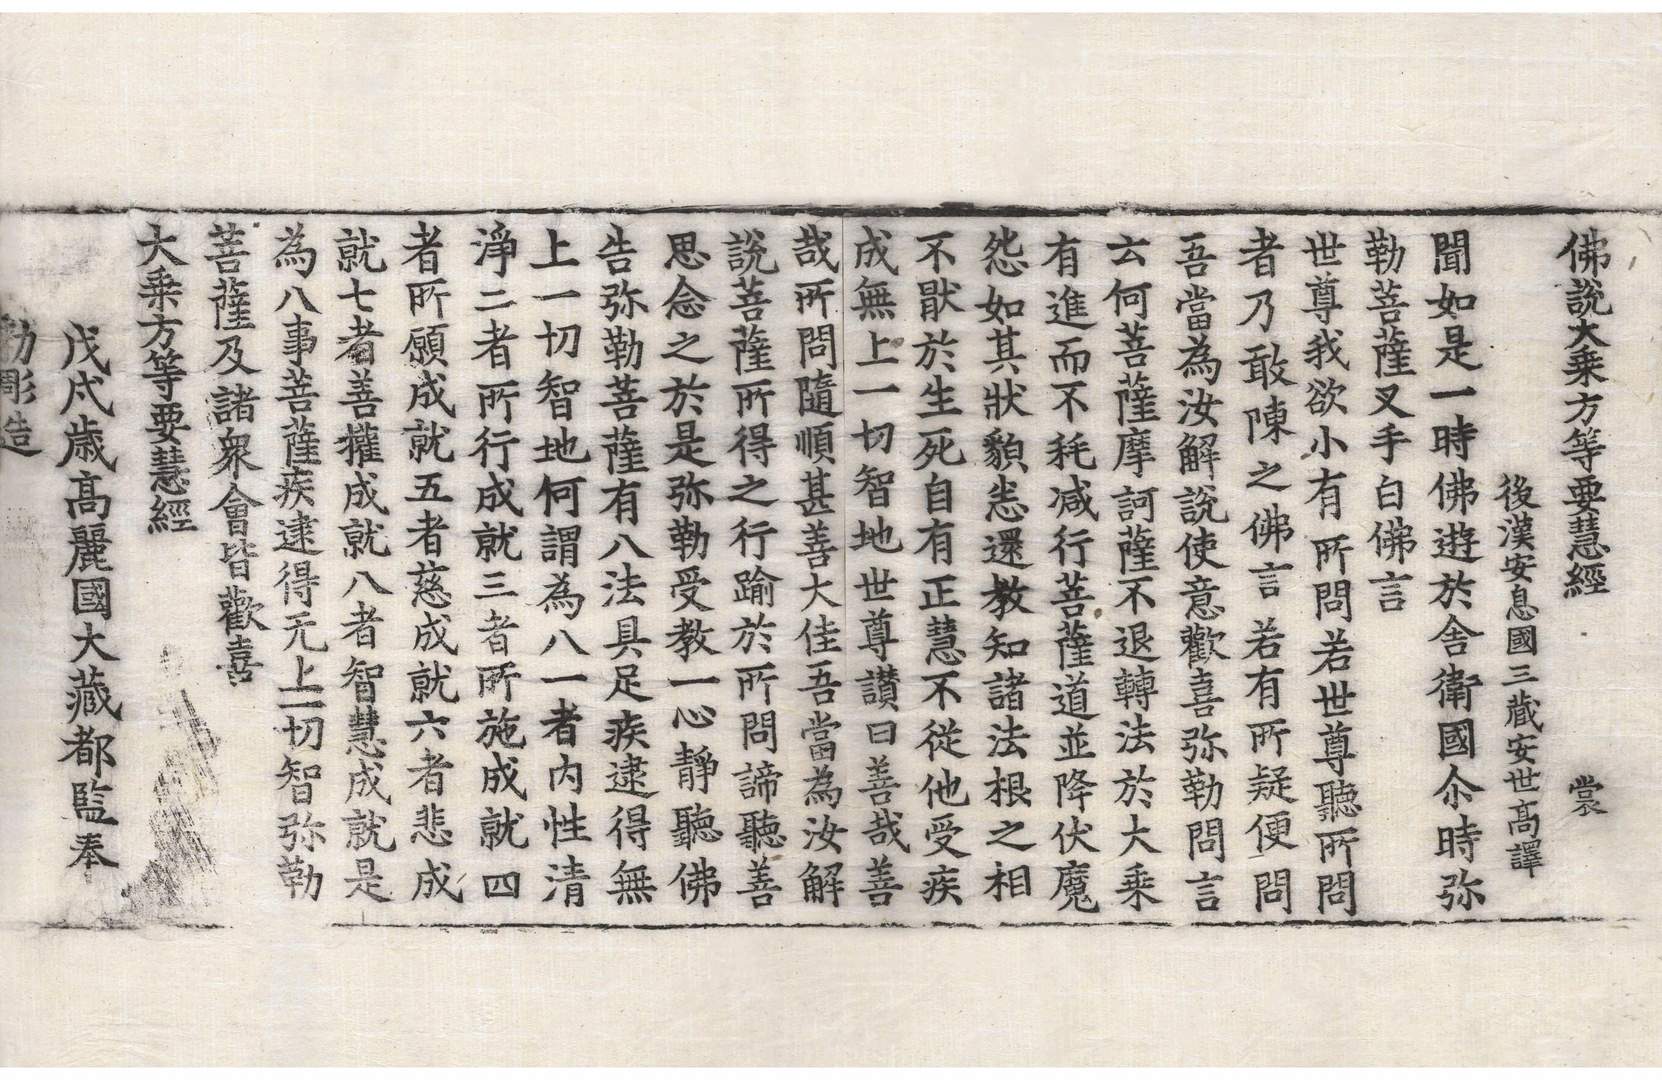 佛說大乘方等要慧經 裳
後漢安息國三藏安世高譯
聞如是一時佛遊於舍衛國尒時弥
勒菩薩叉手白佛言
世尊我欲小有所問若世尊聽所問
者乃敢陳之佛言若有所疑便問
吾當為汝解說使意歡喜弥勒問言
云何菩薩摩訶薩不退轉法於大乘
有進而不耗減行菩薩道並降伏魔
怨如其狀貌恙還教知諸法根之相
不猒於生死自有正慧不從他受疾
成無上一切智地世尊讃曰善哉善
哉所問隨順甚善大佳吾當為汝解
說菩薩所得之行踰於所問諦聽善
思念之於是弥勒受教一心靜聽佛
告弥勒菩薩有八法具足疾逮得無
上一切智地何謂為八一者內性清
淨二者所行成就三者所施成就四
者所願成就五者慈成就六者悲成
就七者善攉成就八者智慧成就是
為八事菩薩疾逮得无上一切智弥勒
菩薩及諸衆會皆歡喜
大乘方等要慧經
戊戌歲高麗國大藏都監奉
勑彫造